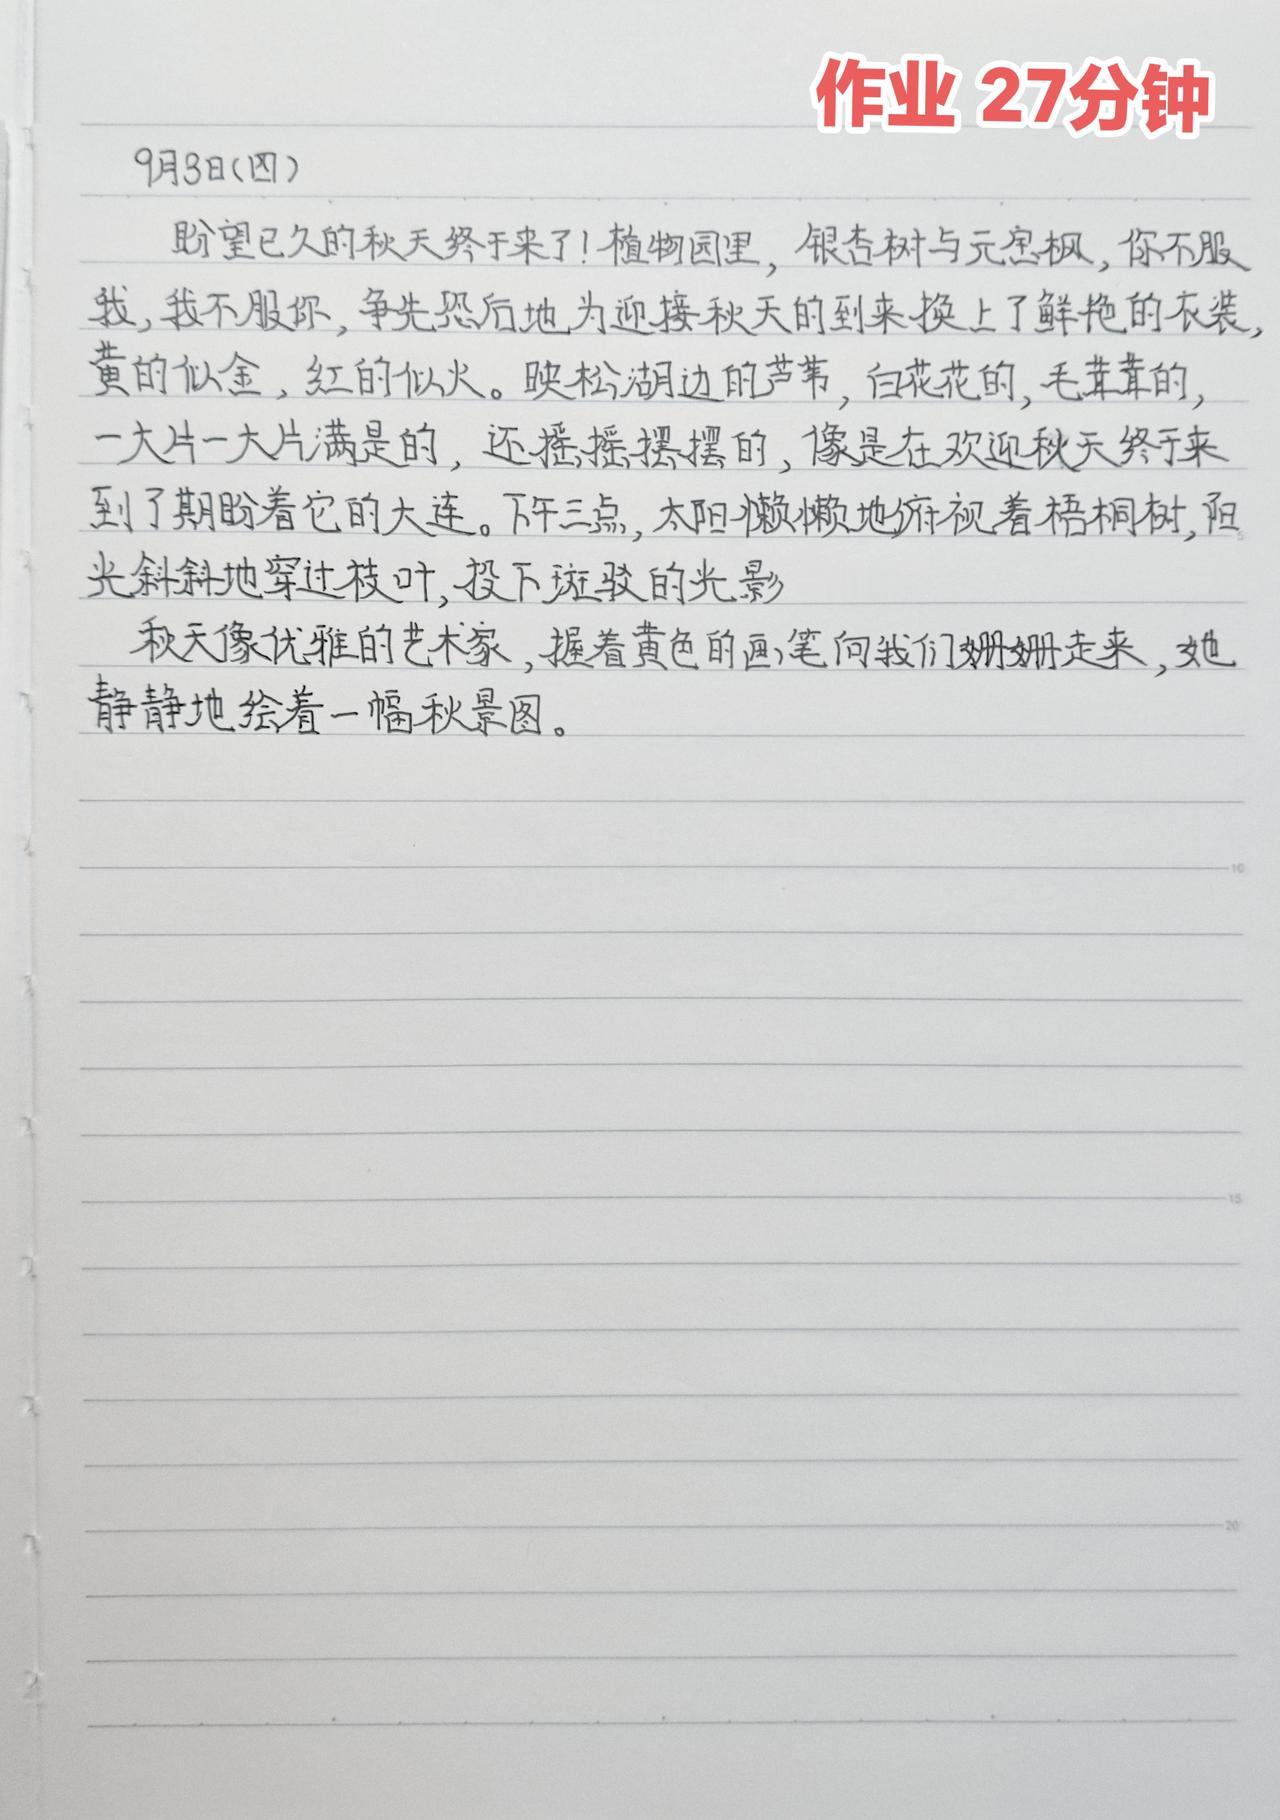 作业 27分钟
9月3日(四)
盼望已久的秋天终于来了!植物园里,银杏树与元宝枫,你不服
我,我不服你,争先恐后地为迎接秋天的到来换上了鲜艳的衣装,
黄的似金,红的似火。映松湖边的芦苇,白花花的,毛茸茸的,
一大片一大片满是的,还摇摇摆摆的,像是在欢迎秋天终于来
到了期盼着它的大连。下午三点,太阳懒懒地俯视着梧桐树,阳
光斜斜地穿过枝叶,投下斑驳的光影
秋天像优雅的艺术家,握着黄色的画笔向我们姗姗走来,她
静静地绘着一幅秋景图。
5
10
15
20